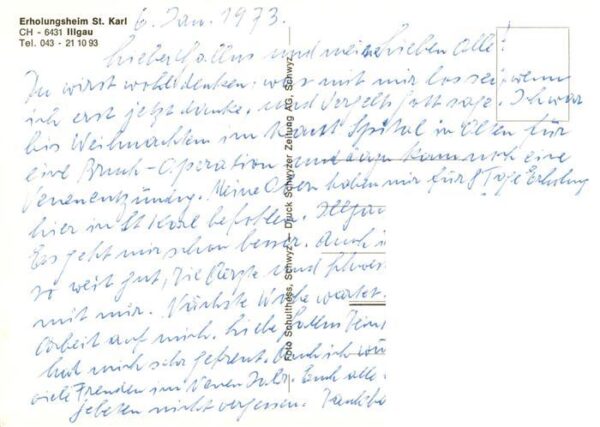 Erholungsheim St. Karl
CH - 6431 Illgau
Tel. 043 - 21 10 93
6. Jan. 1973.
Lieber und meine lieben Alle!
Du wirst wohl denken, was mit mir los sei, wenn
ich erst jetzt danke und Vergelts Gott sage. Ich war
bis Weihnachten im Kant. Spital in Olten für
eine Bruch-Operation und dazu kam noch eine
Venenentzündung. Meine Obern haben mir für 8 Tage Erholung
hier in St. Karl befohlen. Illgau
Es geht mir schon besser. Auch i
so weit gut, die Ärzte und
mit mir. Nächste Woche wartet
Arbeit auf mich. Liebe
hat mich sehr gefreut. Auch ich wü
viele Freuden im Neuen Jahr. Euch alle
Gebeten nicht vergessen. Dankba
Foto Schulthess, Schwyz — Druck Schwyzer Zeitung AG, Schwyz